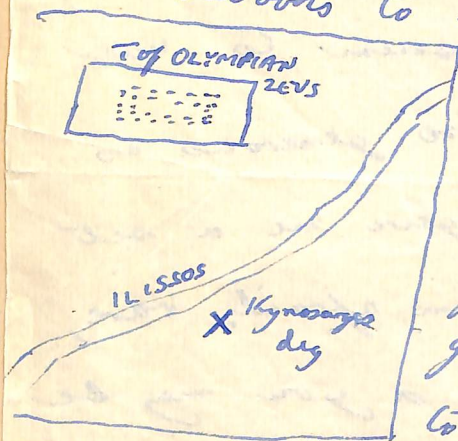 T of OLYMPIAN
ZEUS
ILISSOS
X Kynosarges
dig